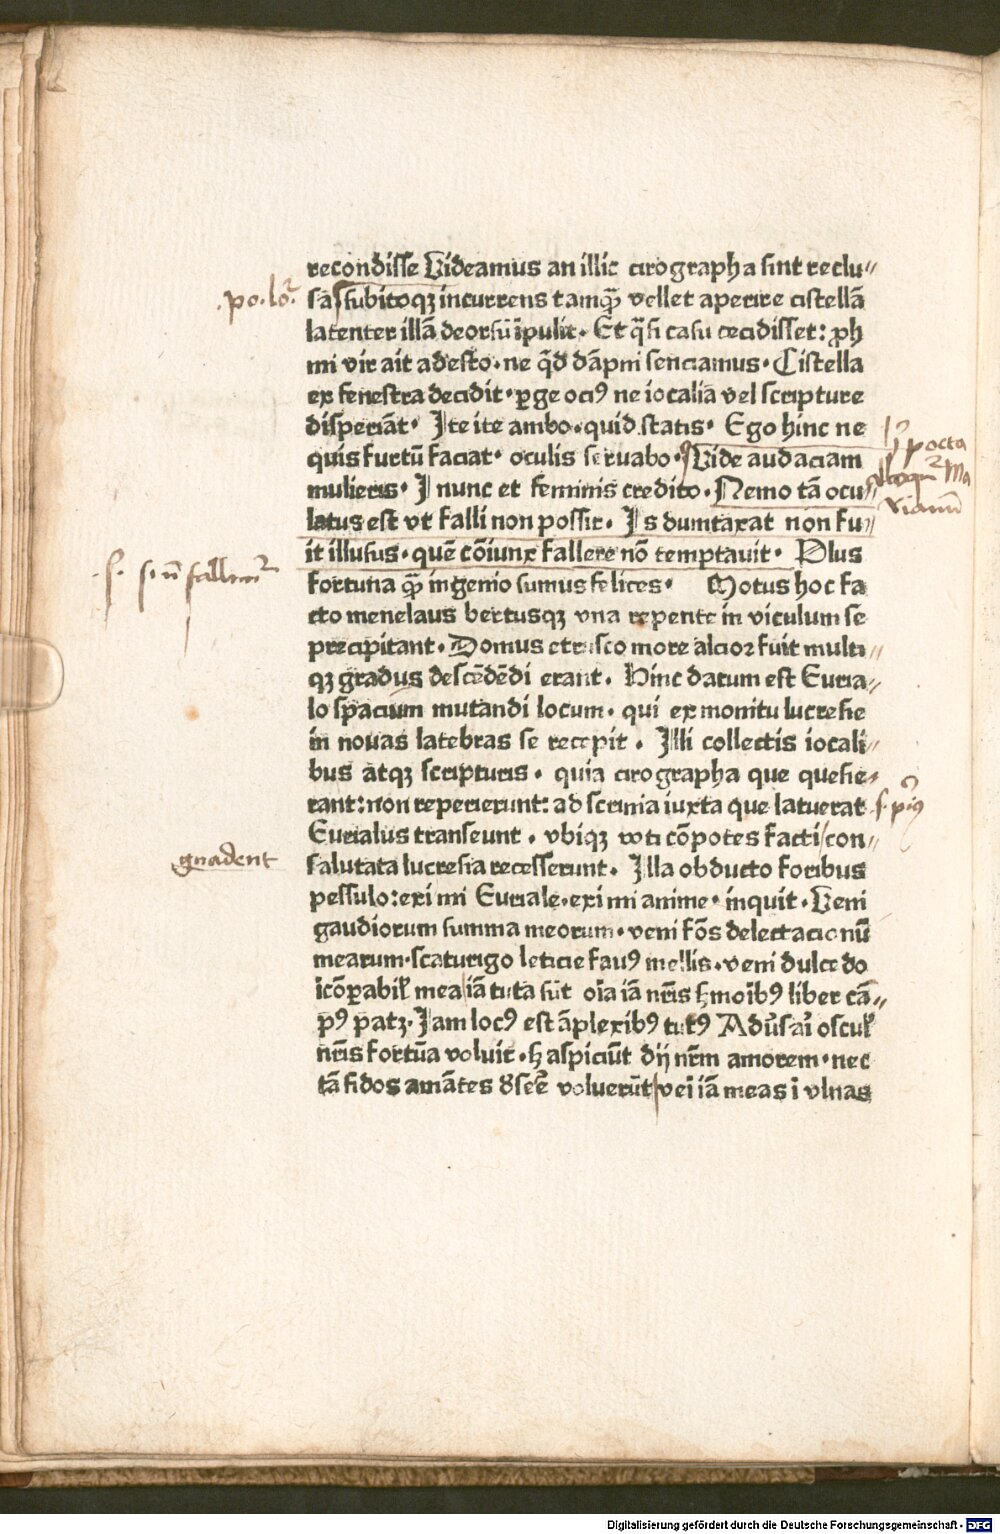 recondisse Videamus an illic cirographa sint reclu〃
sa subitoqꝫ incurrens tamqꝫ̄ vellet aperire cistellā
latenter illā deorsū īpulit. Et q̄si casu cecidisset: ꝓh
mi vir ait adesto. ne q̄d dāpni senciamus. Cistella
ex fenestra decidit. ꝑge ociꝰ ne iocalia vel scripture
disperiāt. Ite ite ambo. quid statis. Ego hinc ne
quis furtū faciat. oculis seruabo. Vide audaciam
mulieris. I nunc et feminis credito. Nemo tā ocu〃
latus est vt falli non possit. Is dumtaxat non fu〃
it illusus. quē cōiunx fallere nō temptauit. Plus
fortuna qꝫ̄ ingenio sumus felices. Motus hoc fa
cto menelaus bertusqꝫ vna repente in viculum se
precipitant. Domus etrusco more alcior fuit multi〃
qꝫ gradus descēdēdi erant. Hinc datum est Euria〃
lo spacium mutandi locum. qui ex monitu lucresie
in nouas latebras se recepit. Illi collectis iocali〃
bus atqꝫ scripturis. quia cirographa que quesie〃
rant: non repererunt: ad scrinia iuxta que latuerat
Eurialus transeunt. vbiqꝫ voti cōpotes facti con〃
salutata lucresia recesserunt. Illa obducto foribus
pessulo: exi mi Euriale. exi mi anime. inquit. Veni
gaudiorum summa meorum. veni fōs delectacionū
mearum. scaturigo leticie fauꝰ mellis. veni dulcedo
īcōꝑabil' mea iā tuta sūt oīa iā nr̄is ẜmoībꝰ liber cā〃
pꝰ patꝫ. Iam locꝰ est āplexibꝰ tutꝰ Aduͥsaī oscul'
nr̄is fortūa voluit. ẜ aspiciūt dij nr̄m amorem. nec
tā fidos amātes desēē voluerūt vēi iā meas ī vlnas
gnadent
Digitalisierung gefördert durch die Deutsche Forschungsgemeinschaft - DFG